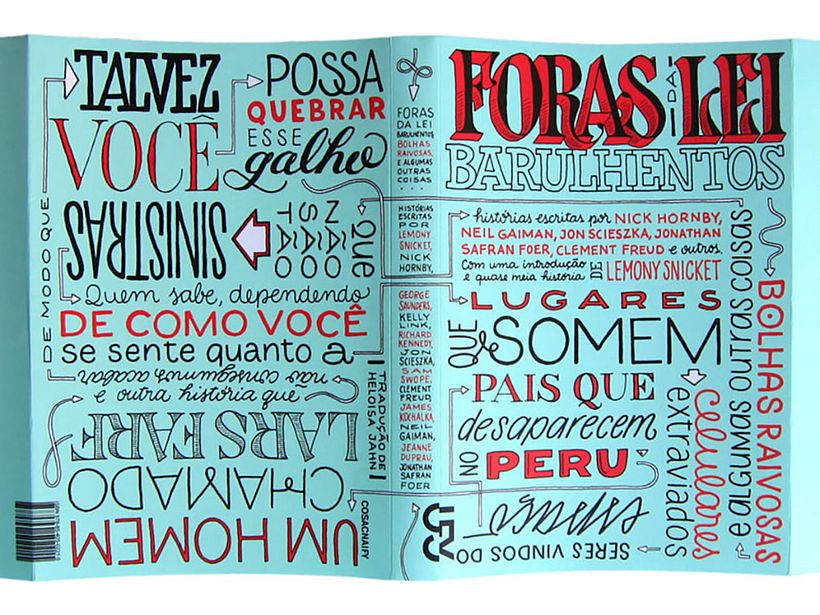 TALVEZ
VOCÊ
POSSA
QUEBRAR
ESSE
galho
DE MODO QUE
SINISTRAS
TÃO
SÃO
NÃO
que
Quem sabe, dependendo
DE COMO VOCÊ
se sente quanto a
não conseguimos acabar
e outra história que
LARS FARF
CHAMADO
UM HOMEM
TRADUÇÃO DE
HELOISA JAHN
COSACNAIFY
FORAS
DA LEI
BARULHENTOS
BOLHAS
RAIVOSAS,
E ALGUMAS
OUTRAS
COISAS
...
HISTÓRIAS
ESCRITAS
POR
LEMONY
SNICKET,
NICK
HORNBY,
GEORGE
SAUNDERS,
KELLY
LINK,
RICHARD
KENNEDY,
JON
SCIESZKA,
SAM
SWOPE,
CLEMENT
FREUD,
JAMES
KOCHALKA,
NEIL
GAIMAN,
JEANNE
DUPRAU,
JONATHAN
SAFRAN
FOER
FORAS DA LEI
BARULHENTOS
histórias escritas por NICK HORNBY,
NEIL GAIMAN, JON SCIESZKA, JONATHAN
SAFRAN FOER, CLEMENT FREUD e outros.
Com uma introdução
e quase meia história DE LEMONY SNICKET
BOLHAS RAIVOSAS
e algumas outras coisas
LUGARES
QUE se SOMEM
PAIS QUE
desaparecem
NO PERU
celulares
extraviados
SERES VINDOS DO
espaço